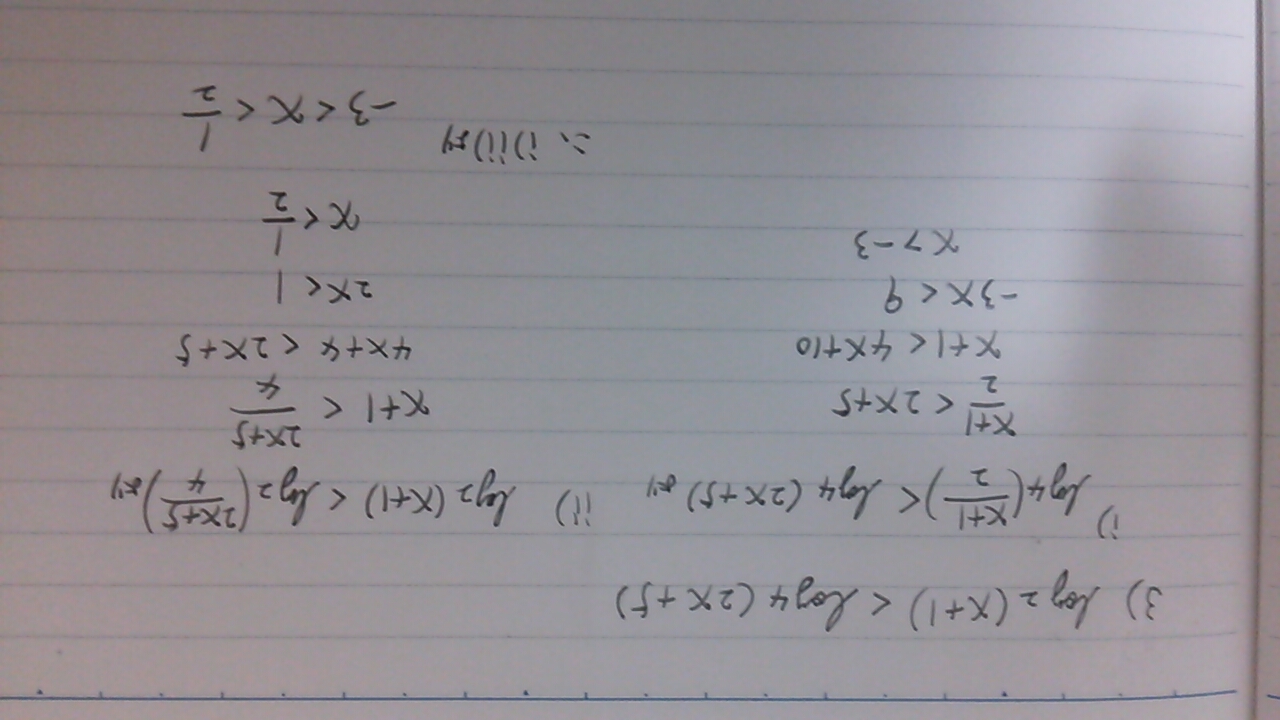 3) log2(x+1) < log4(2x+5)
i) log4((x+1)/2) < log4(2x+5)より
(x+1)/2 < 2x+5
x+1 < 4x+10
-3x < 9
x > -3
ii) log2(x+1) < log2((2x+5)/4)より
x+1 < (2x+5)/4
4x+4 < 2x+5
2x < 1
x < 1/2
∴ i)ii)より
-3 < x < 1/2